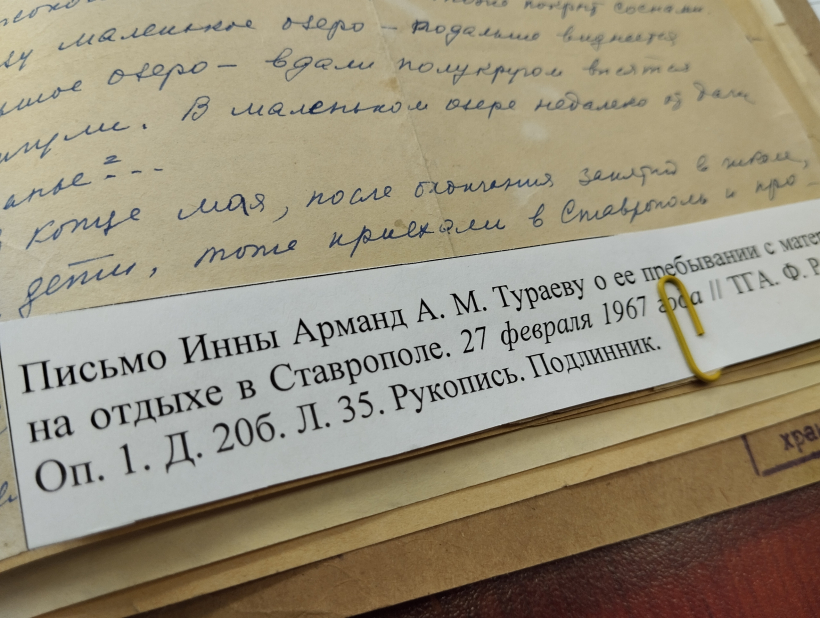 покрыт соснами.
маленькое озеро – подальше виднеется
озеро – вдали полукругом высятся
В маленьком озере недалеко от дачи
конце мая, после окончания занятий в школе,
дети, тоже приехали в Ставрополь и про-
Письмо Инны Арманд А. М. Тураеву о ее пребывании с матер
на отдыхе в Ставрополе. 27 февраля 1967 года // ТГА. Ф. Р
Оп. 1. Д. 20б. Л. 35. Рукопись. Подлинник.
хран